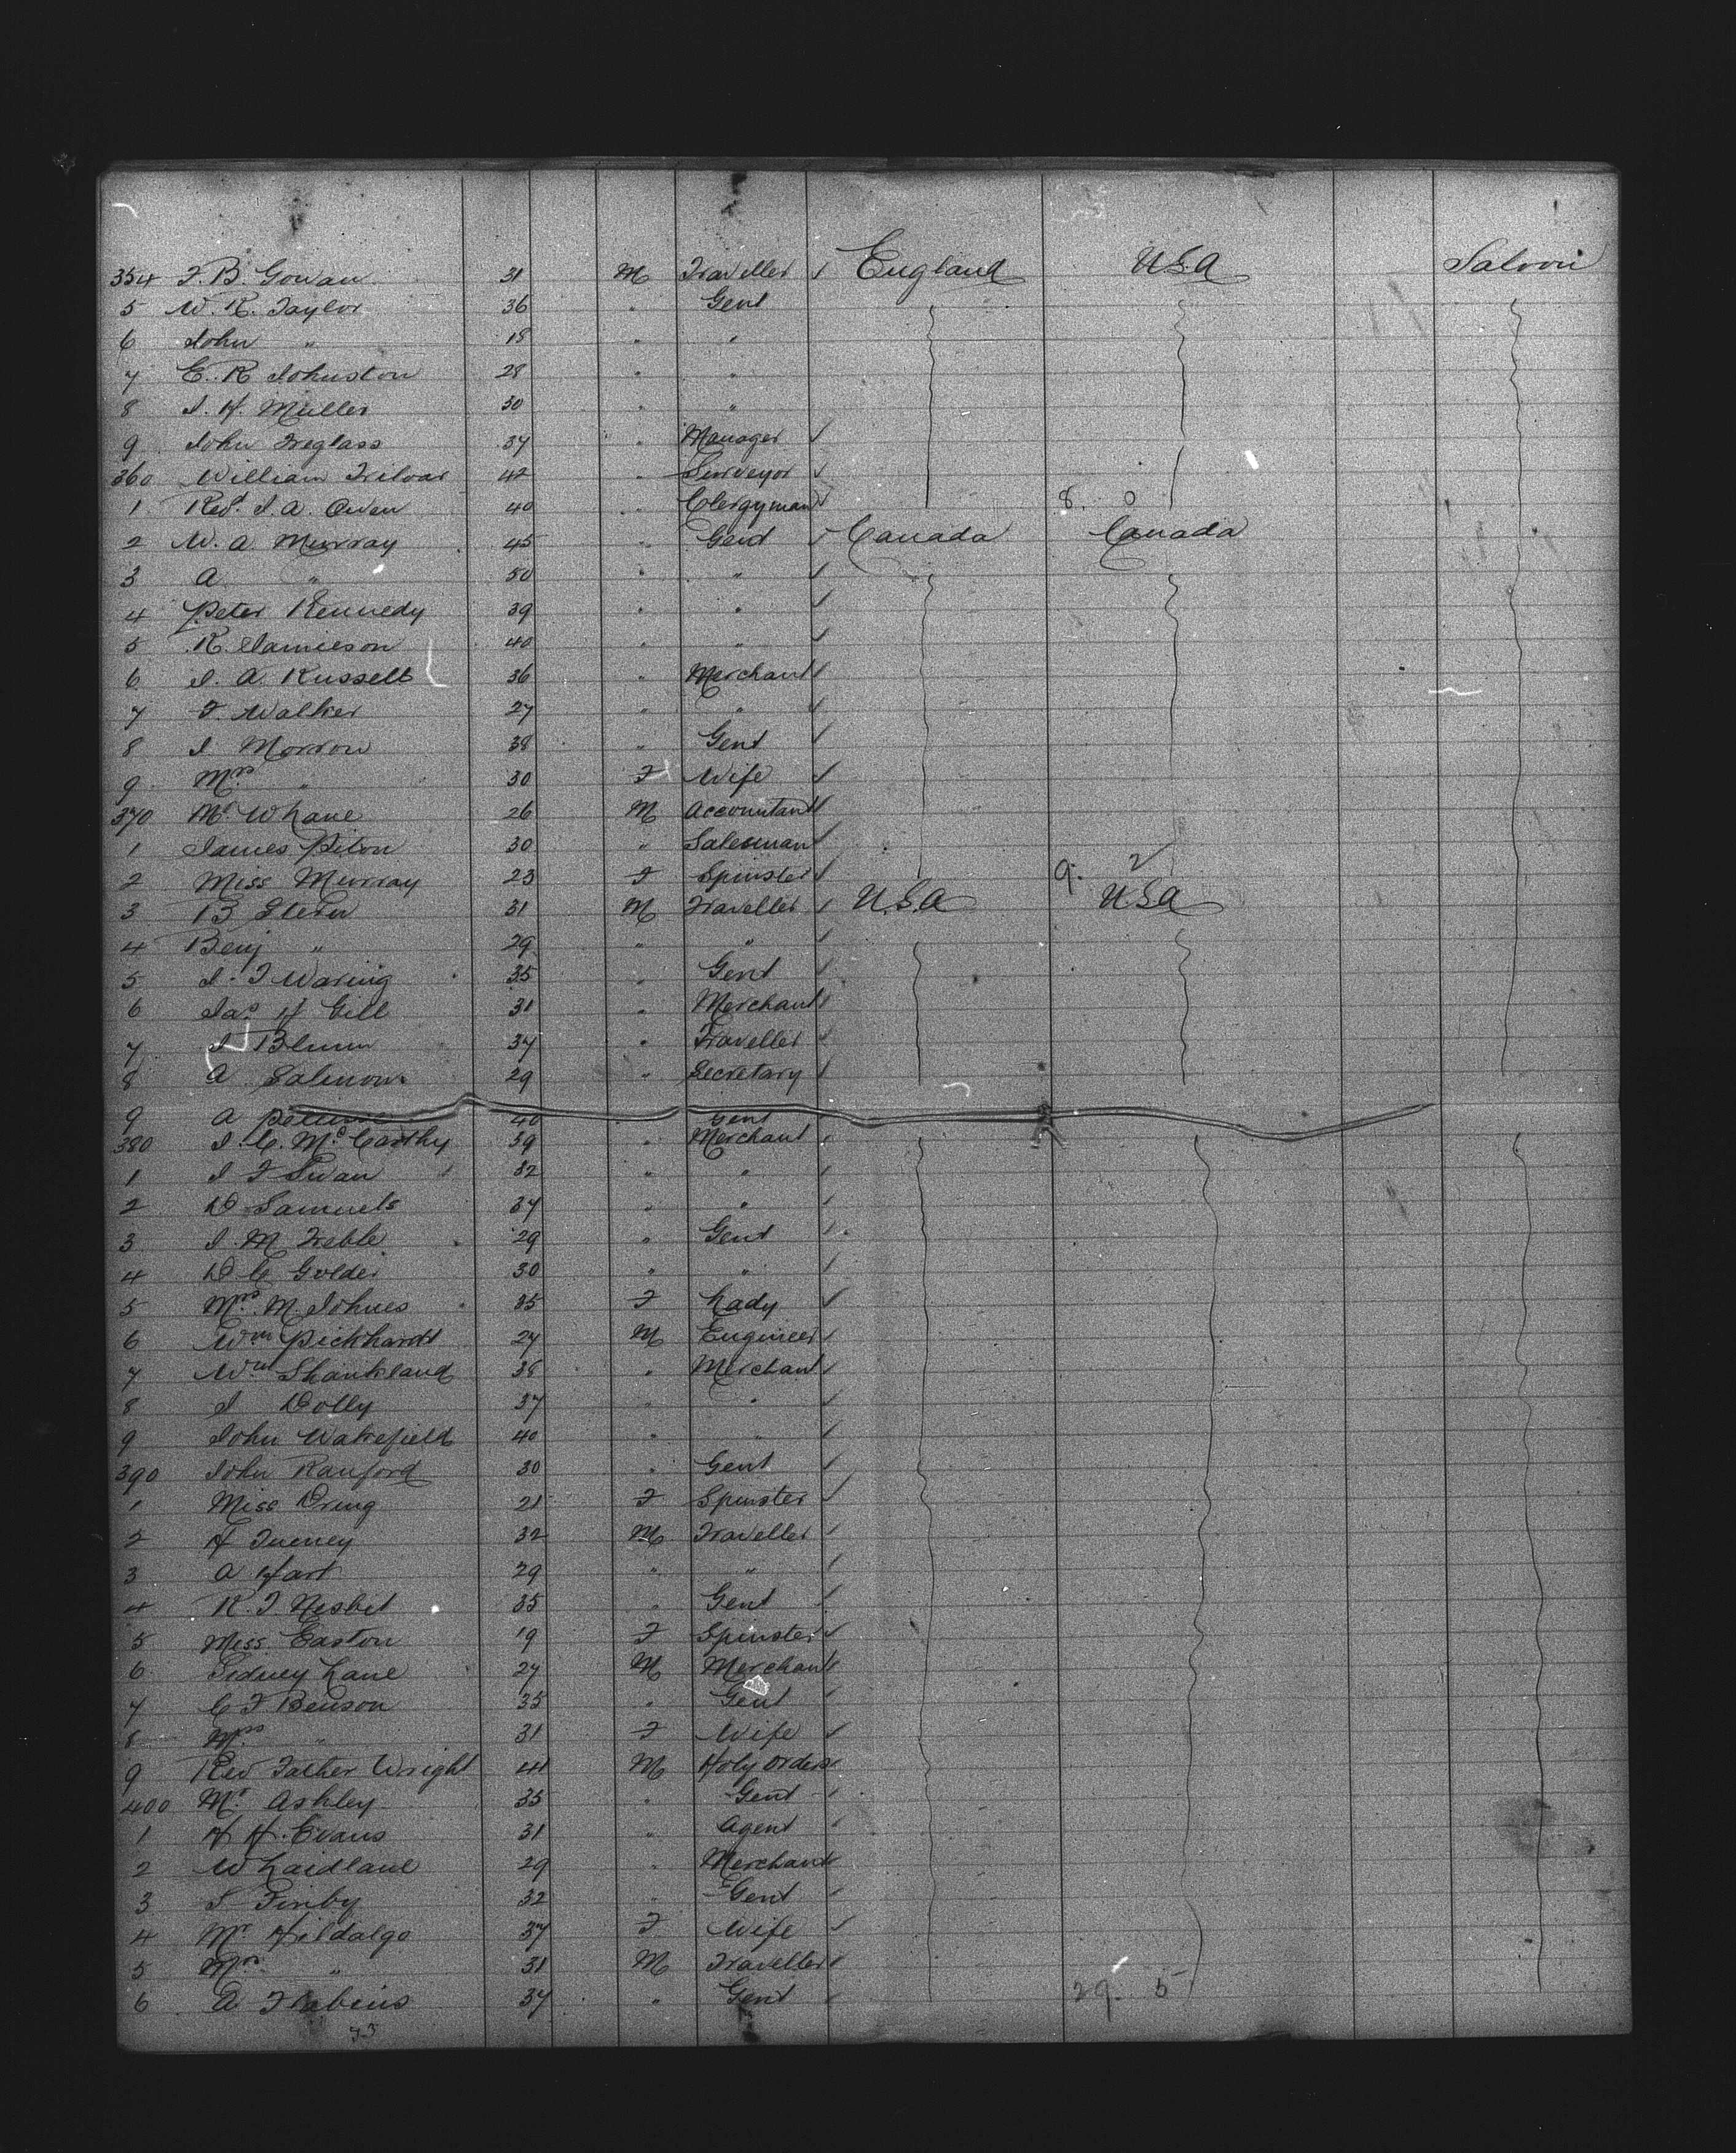 354 F. B. Gowan 31 M Traveller ✓ England U.S.A Saloon
5 W. R. Taylor 36 " Gent
6 John " 18 " "
7 E. R Johnston 28 " "
8 J. H. Muller 30 " "
9 John Treglass 37 " Manager ✓
360 William Triloar 42 " Surveyor ✓
1 Revd. J. A. Owen 40 " Clergyman ✓ 8. 0
2 W. A. Murray 45 " Gent ✓ Canada Canada
3 A. " 50 " " ✓
4 Peter Kennedy 39 " " ✓
5 R. Jamieson 40 " " ✓
6 J. A. Russell 36 " Merchant ✓
7 F. Walker 27 " " ✓
8 J Morrow 38 " Gent ✓
9 Mrs " 30 F Wife ✓
370 Mr Whane 26 M Accountant ✓
1 James Piton 30 " Salesman ✓
2 Miss Murray 23 F Spinster ✓ 9. 2
3 B Stern 31 M Traveller ✓ U.S.A U.S.A
4 Benj " 29 " " ✓
5 J. F Waring 35 " Gent ✓
6 Jas H Gill 31 " Merchant ✓
7 J Blum 37 " Traveller ✓
8 A Salmon 29 " Secretary ✓
9 A 40 Gent
380 J. C. McCarthy 39 " Merchant ✓
1 J F Swan 32 " " ✓
2 D Samuels 37 " " ✓
3 J. M Treble 29 " Gent ✓
4 D C Golder 30 " " ✓
5 Mrs. M. Johnes 35 F Lady ✓
6 Wm Pickhardt 27 M Engineer ✓
7 Wm Shankland 38 " Merchant ✓
8 J Dolly 37 " " ✓
9 John Wakefield 40 " " ✓
390 John Ranford 30 " Gent ✓
1 Miss Dring 21 F Spinster ✓
2 H Tueney 32 M Traveller ✓
3 A Hart 29 " " ✓
4 R. J Nesbit 35 " Gent ✓
5 Miss Easton 19 F Spinster ✓
6 Sidney Lane 27 M Merchant ✓
7 C F Benson 35 " Gent ✓
8 Mrs " 31 F Wife ✓
9 Rev Father Wright 41 M Holy Orders ✓
400 Mr. Ashley 35 " Gent ✓
1 H H. Evans 31 " Agent ✓
2 W Laidlane 29 " Merchant ✓
3 J Finby 32 " Gent ✓
4 Mr Hildalgo 37 F Wife ✓
5 Mrs. " 31 M Traveller ✓
6 A 37 " Gent ✓ 29. 5
53